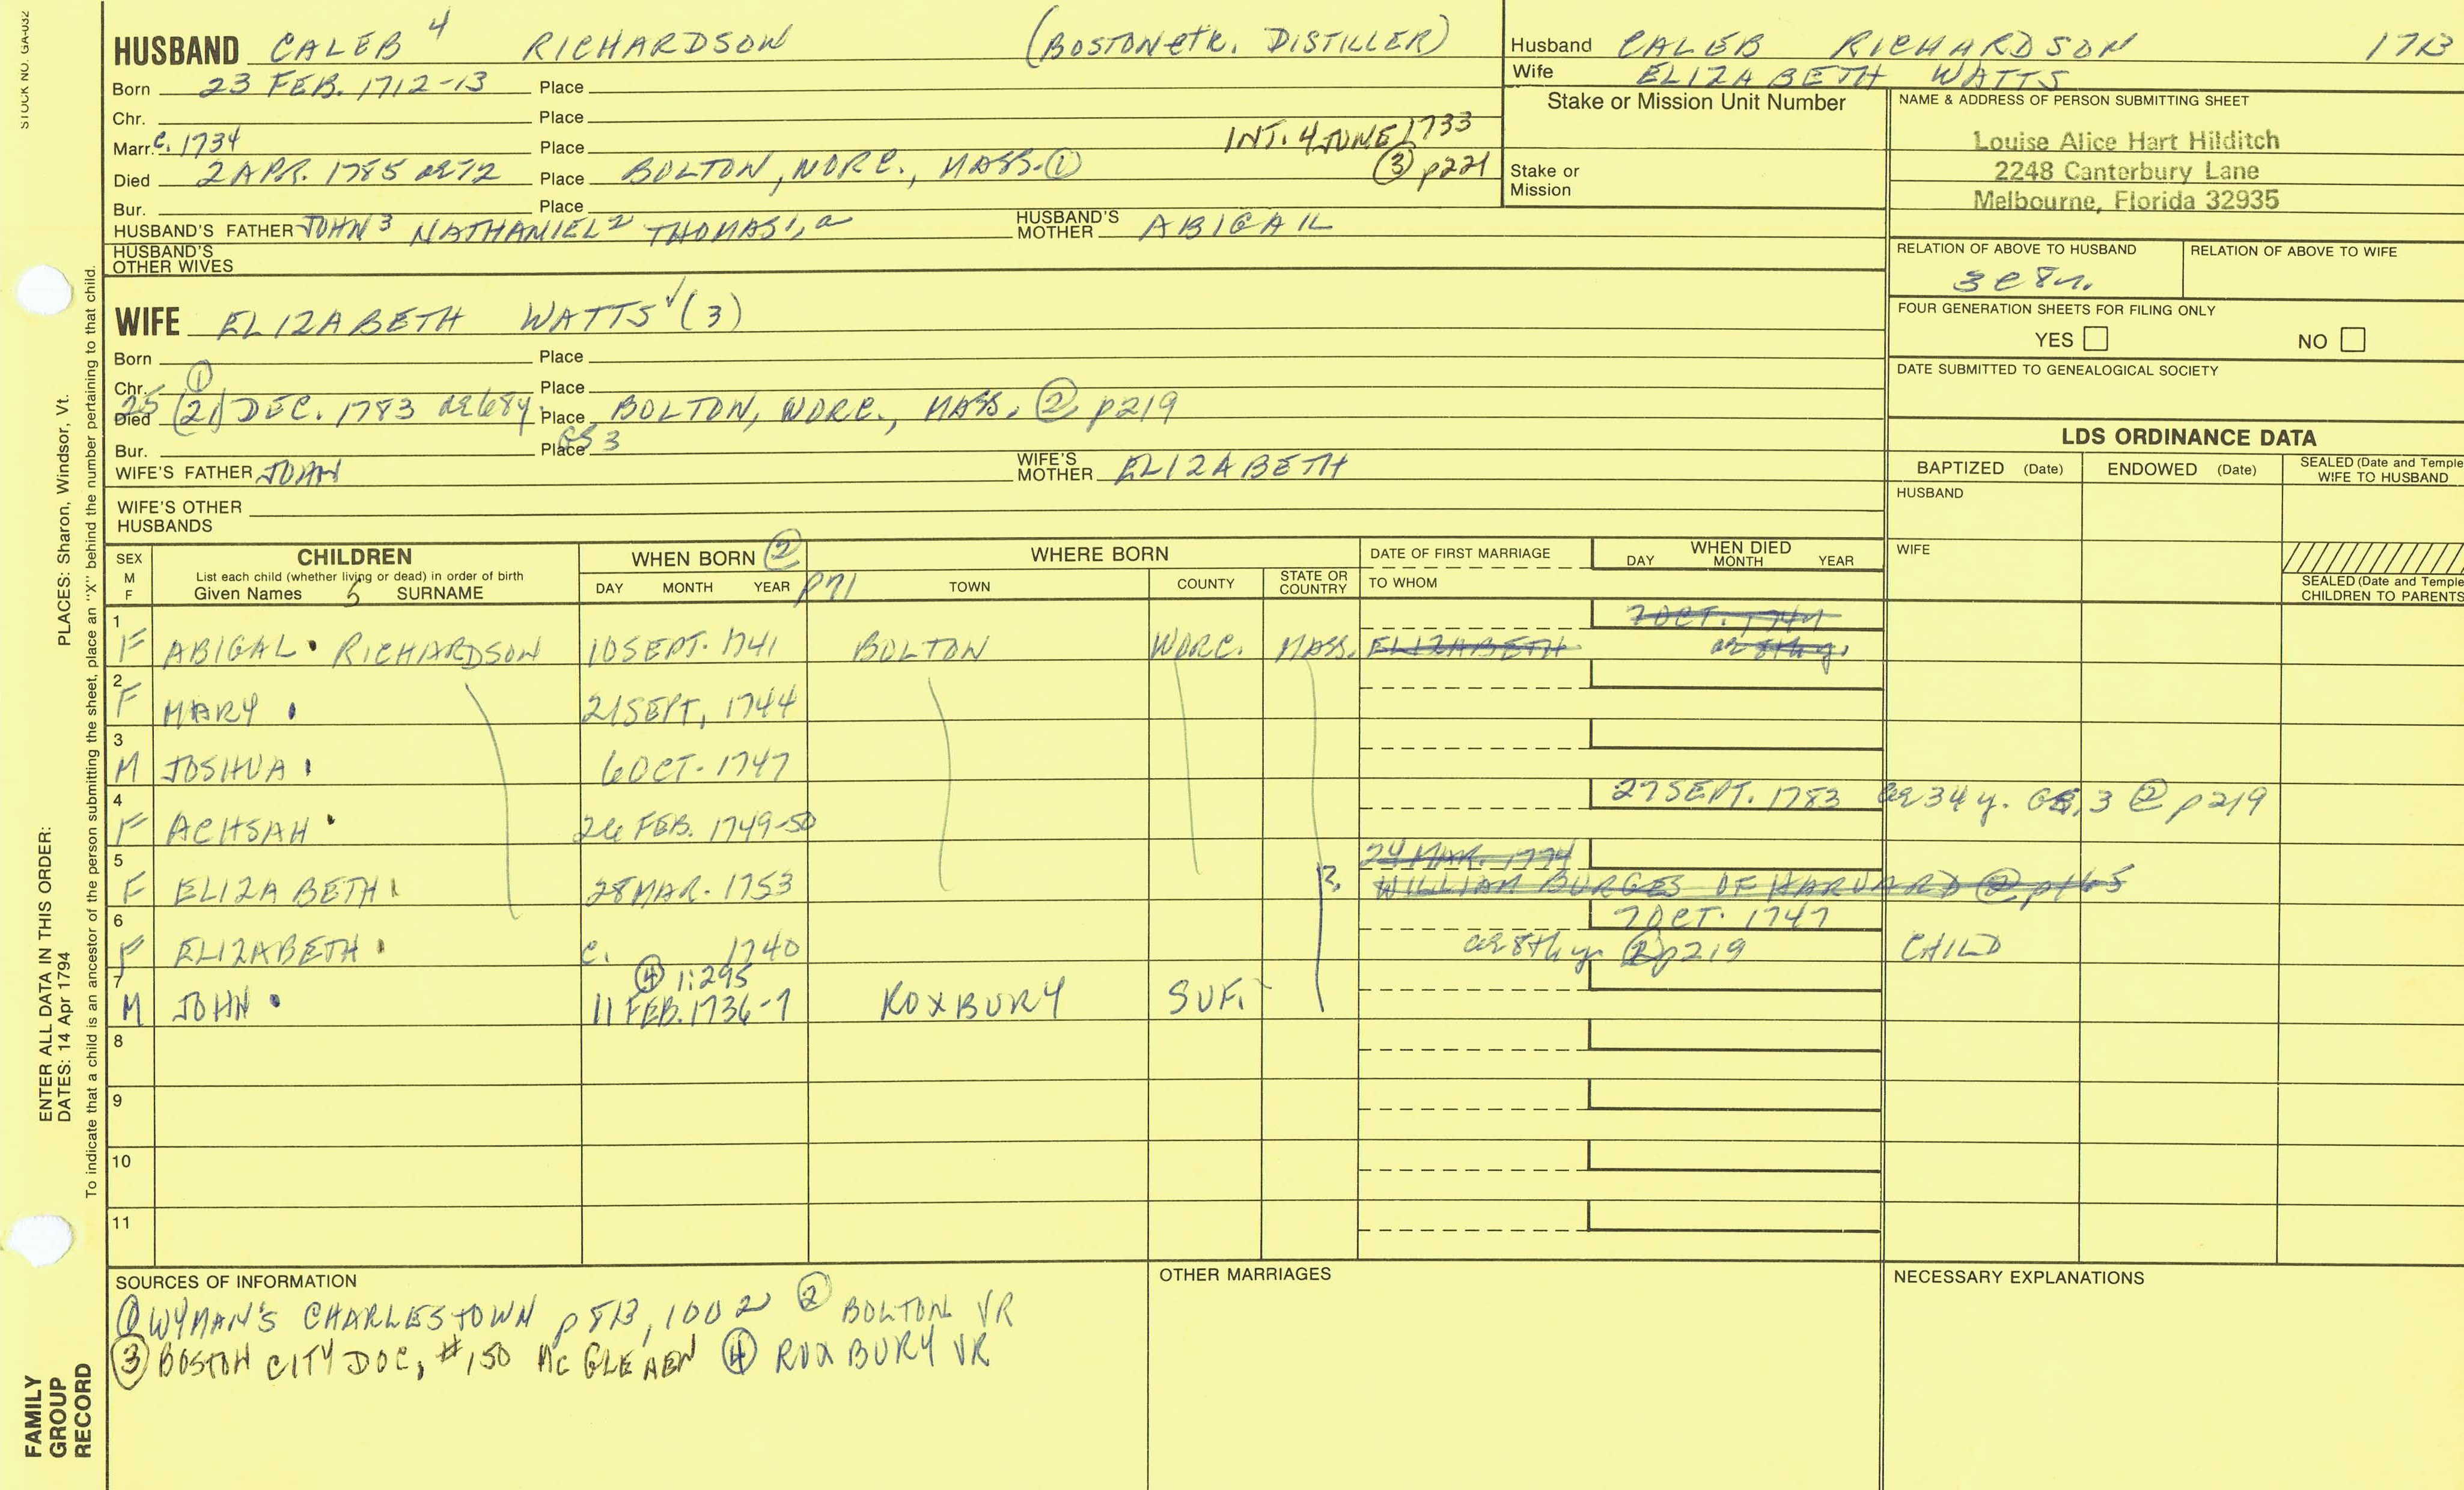 STOCK NO. GA-032
HUSBAND CALEB 4 RICHARDSON (BOSTON etc. DISTILLER)
Born 23 FEB. 1712-13 Place
Chr. Place
Marr. c. 1734 Place INT. 4 JUNE 1733
Died 2 APR. 1785 ae 72 Place BOLTON, WORC., MASS. ① ③ p221
Bur. Place
HUSBAND'S FATHER JOHN 3 NATHANIEL 2 THOMAS 1, 2 HUSBAND'S MOTHER ABIGAIL
HUSBAND'S OTHER WIVES
WIFE ELIZABETH WATTS √ (3)
Born Place
Chr. ① Place
Died 25 (21) DEC. 1783 ae 68y. Place BOLTON, WORC., MASS. ② p219
Bur. Place GS 3
WIFE'S FATHER JOHN WIFE'S MOTHER ELIZABETH
WIFE'S OTHER HUSBANDS
Husband CALEB RICHARDSON 1713
Wife ELIZABETH WATTS
Stake or Mission Unit Number
Stake or Mission
NAME & ADDRESS OF PERSON SUBMITTING SHEET
Louise Alice Hart Hilditch
2248 Canterbury Lane
Melbourne, Florida 32935
RELATION OF ABOVE TO HUSBAND RELATION OF ABOVE TO WIFE
3c8r.
FOUR GENERATION SHEETS FOR FILING ONLY
YES NO
DATE SUBMITTED TO GENEALOGICAL SOCIETY
LDS ORDINANCE DATA
BAPTIZED (Date) ENDOWED (Date) SEALED (Date and Temple WIFE TO HUSBAND
HUSBAND
WIFE
SEALED (Date and Temple CHILDREN TO PARENTS
SEX M F CHILDREN WHEN BORN ② WHERE BORN DATE OF FIRST MARRIAGE WHEN DIED
List each child (whether living or dead) in order of birth
Given Names 5 SURNAME DAY MONTH YEAR p71 TOWN COUNTY STATE OR COUNTRY TO WHOM DAY MONTH YEAR
7 OCT. 1747
1 F ABIGAL RICHARDSON 10 SEPT. 1741 BOLTON WORC. MASS. ELIZABETH ae 8th y.
2 F MARY 21 SEPT, 1744
3 M JOSHUA 6 OCT. 1747
4 F ACHSAH 26 FEB. 1749-50 27 SEPT. 1783 ae 34 y. GS, 3 ② p219
24 MAR. 1774
5 F ELIZABETH 28 MAR. 1753 ?, WILLIAM BURGES OF HARVARD ② p165
7 OCT. 1747
6 F ELIZABETH c. 1740 ae 8th y ② p219 CHILD
④ 1:295
7 M JOHN 11 FEB. 1736-7 ROXBURY SUF.
8
9
10
11
SOURCES OF INFORMATION
① WYMAN'S CHARLESTOWN p 813, 1002 ② BOLTON VR
③ BOSTON CITY DOC, #150 MC GLEAEN ④ ROXBURY VR
OTHER MARRIAGES
NECESSARY EXPLANATIONS
PLACES: Sharon, Windsor, Vt.
ENTER ALL DATA IN THIS ORDER:
DATES: 14 Apr 1794
To indicate that a child is an ancestor of the person submitting the sheet, place an "X" behind the number pertaining to that child.
FAMILY
GROUP
RECORD